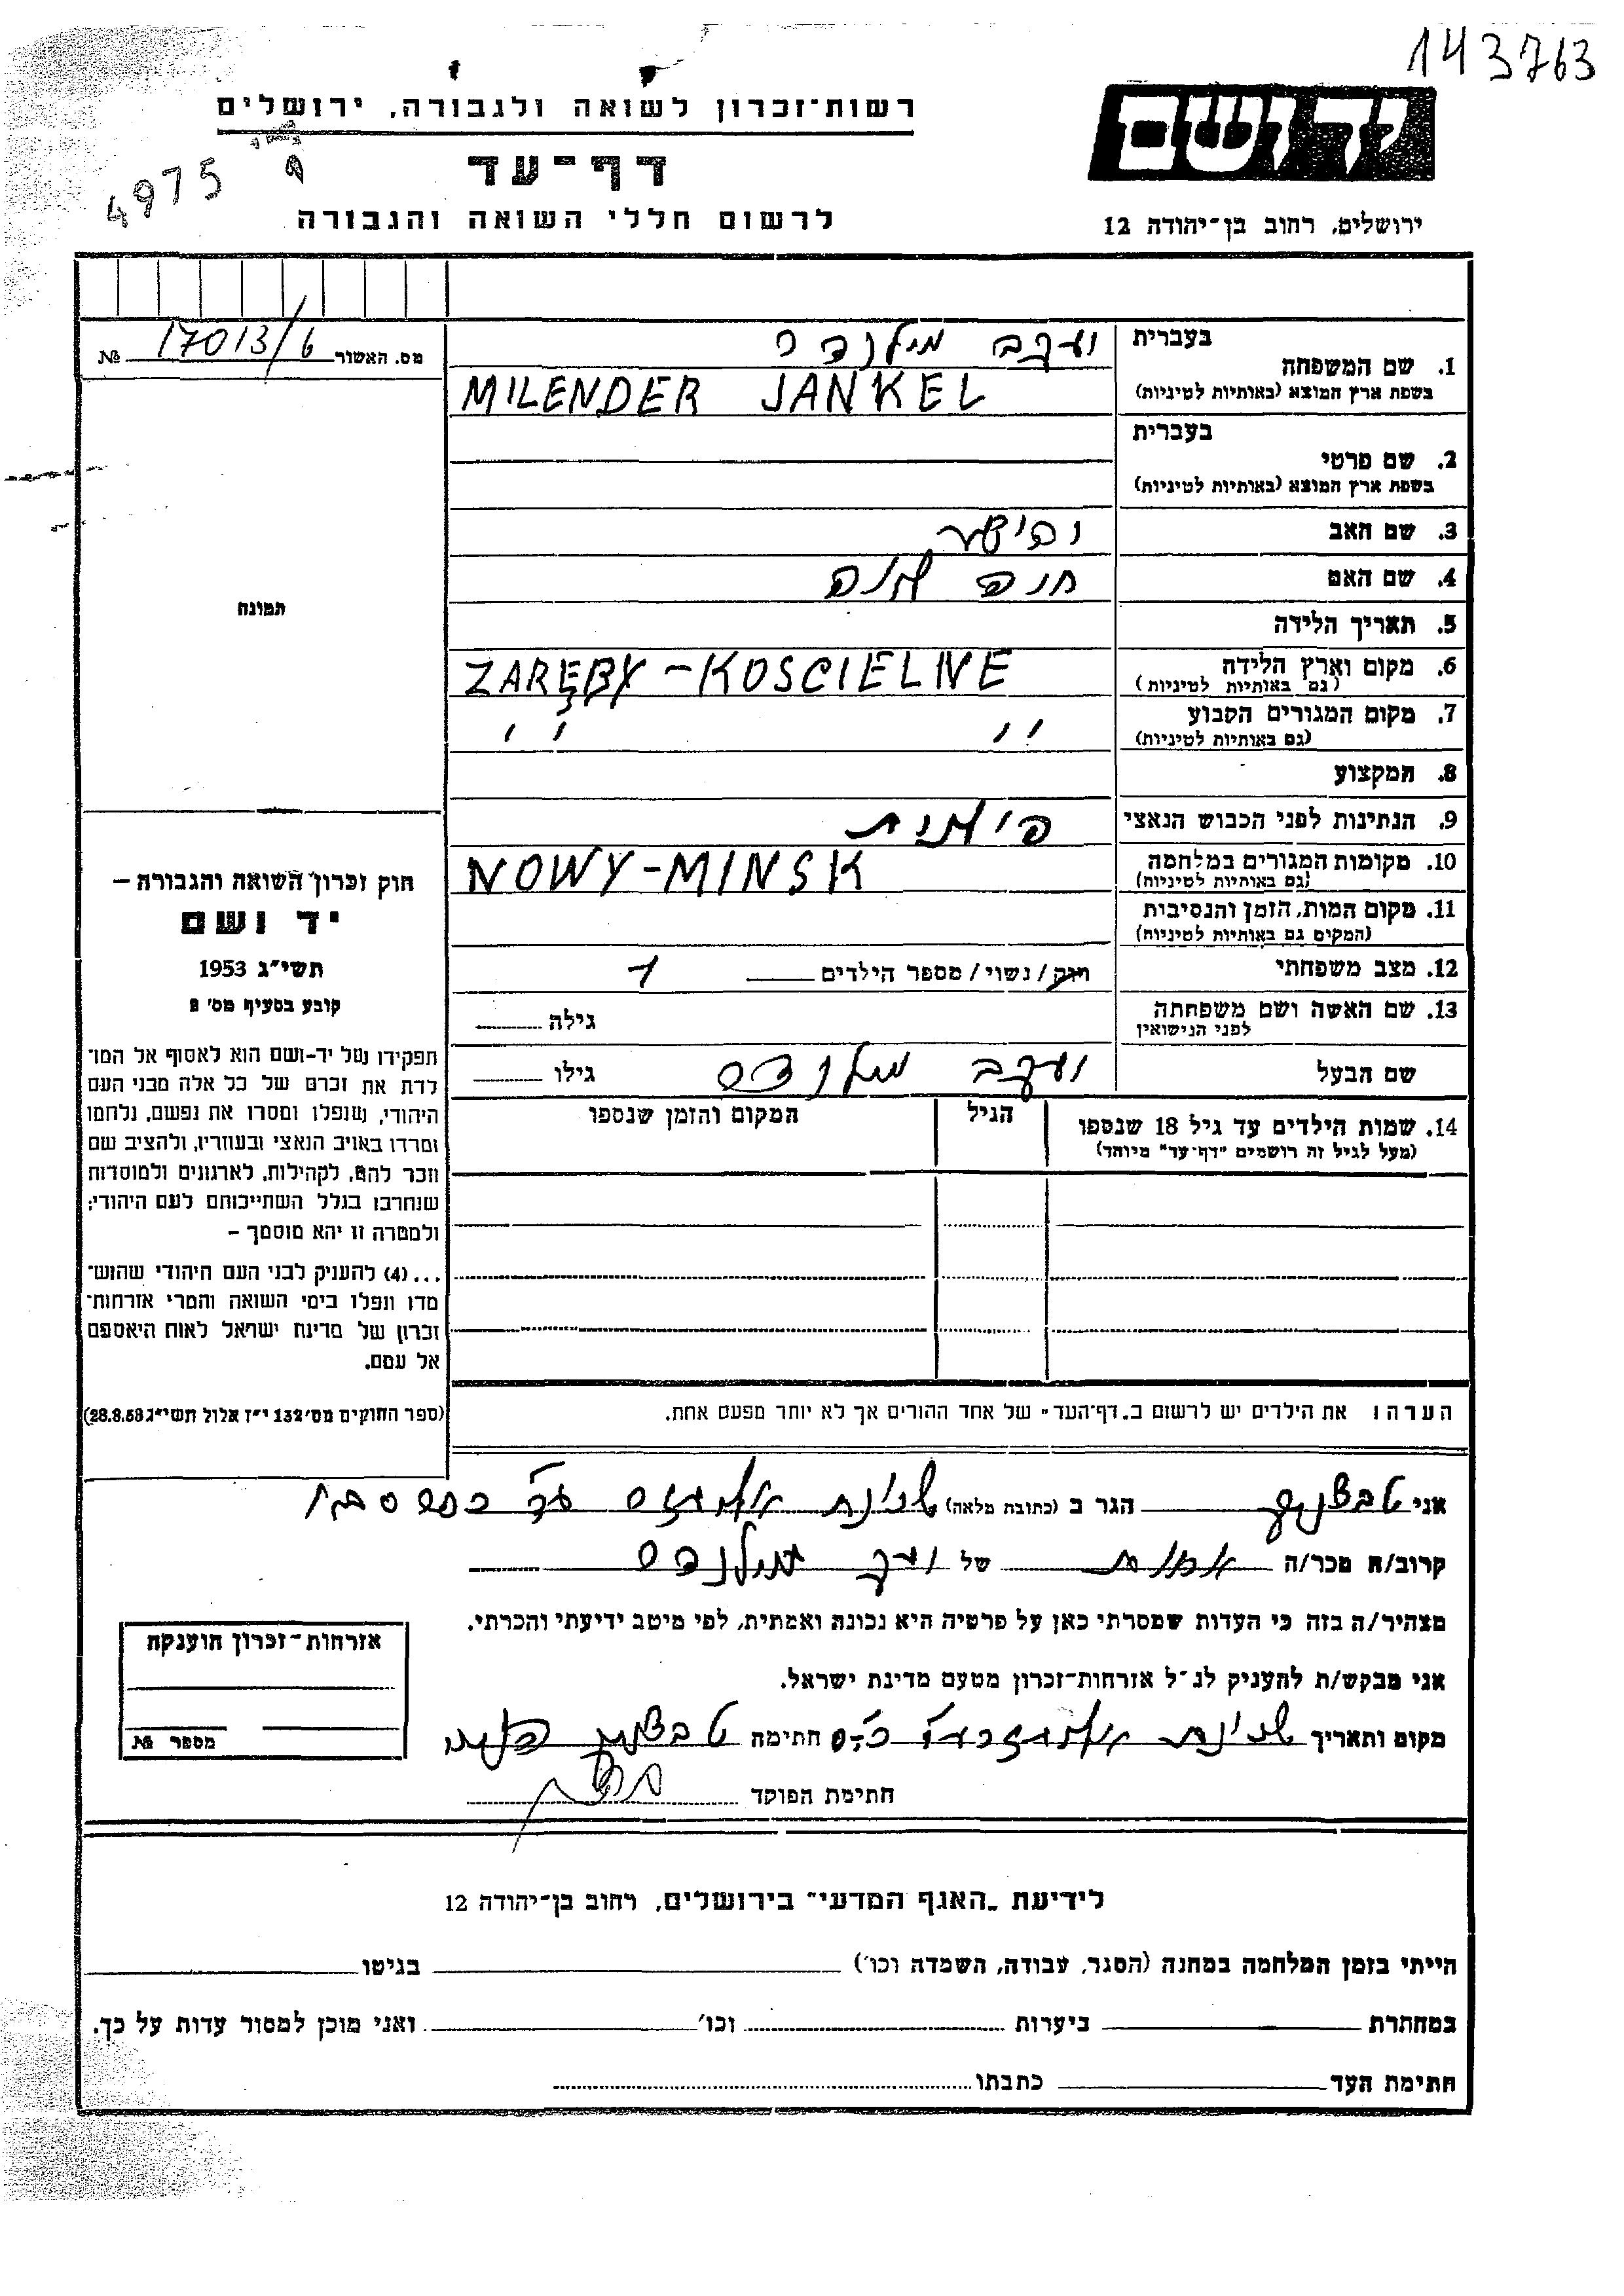 143763
רשות־זכרון לשואה ולגבורה, ירושלים
יד ושם
דף־עד
4975
לרשום חללי השואה והגבורה
ירושלים, רחוב בן־יהודה 12
מס. האשור 17013/6 №
בעברית
יעקב מילנדר
1. שם המשפחה
בשפת ארץ המוצא (באותיות לטיניות)
MILENDER JANKEL
בעברית
2. שם פרטי
בשפת ארץ המוצא (באותיות לטיניות)
3. שם האב
4. שם האם
תמונה
5. תאריך הלידה
6. מקום וארץ הלידה
(גם באותיות לטיניות)
ZARĘBY-KOSCIELNE
7. מקום המגורים הקבוע
(גם באותיות לטיניות)
" "
8. המקצוע
9. הנתינות לפני הכבוש הנאצי
10. מקומות המגורים במלחמה
(גם באותיות לטיניות)
NOWY-MINSK
11. מקום המות, הזמן והנסיבות
(המקום גם באותיות לטיניות)
12. מצב משפחתי
רווק/נשוי/מספר הילדים 1
13. שם האשה ושם משפחתה
לפני הנישואין
גילה
שם הבעל יעקב מילנדר גילו
14. שמות הילדים עד גיל 18 שנספו
(מעל לגיל זה רושמים "דף־עד" מיוחד)
הגיל
המקום והזמן שנספו
חוק זכרון השואה והגבורה –
יד ושם
תשי"ג 1953
קובע בסעיף מס' 2
תפקידו של יד-ושם הוא לאסוף אל המו־
לדת את זכרם של כל אלה מבני העם
היהודי, שנפלו ומסרו את נפשם, נלחמו
ומרדו באויב הנאצי ובעוזריו, ולהציב שם
וזכר להם, לקהילות, לארגונים ולמוסדות
שנחרבו בגלל השתייכותם לעם היהודי;
ולמטרה זו יהא מוסמך –
...(4) להעניק לבני העם היהודי שהוש־
מדו ונפלו בימי השואה והמרי אזרחות־
זכרון של מדינת ישראל לאות היאספם
אל עמם.
(ספר החוקים מס' 132 י"ז אלול תשי"ג 28.8.53)
הערה: את הילדים יש לרשום ב„דף־העד" של אחד ההורים אך לא יותר מפעם אחת.
אני הגר ב (כתובת מלאה)
קרוב/ה מכר/ה של
מצהיר/ה בזה כי העדות שמסרתי כאן על פרטיה היא נכונה ואמתית, לפי מיטב ידיעתי והכרתי.
אני מבקש/ת להעניק לנ"ל אזרחות־זכרון מטעם מדינת ישראל.
מקום ותאריך חתימה
חתימת הפוקד
אזרחות־זכרון הוענקה
מספר №
לידיעת „האגף המדעי" בירושלים, רחוב בן־יהודה 12
הייתי בזמן המלחמה במחנה (הסגר, עבודה, השמדה וכו') בגיטו
במחתרת ביערות וכו' ואני מוכן למסור עדות על כך.
חתימת העד כתבתו